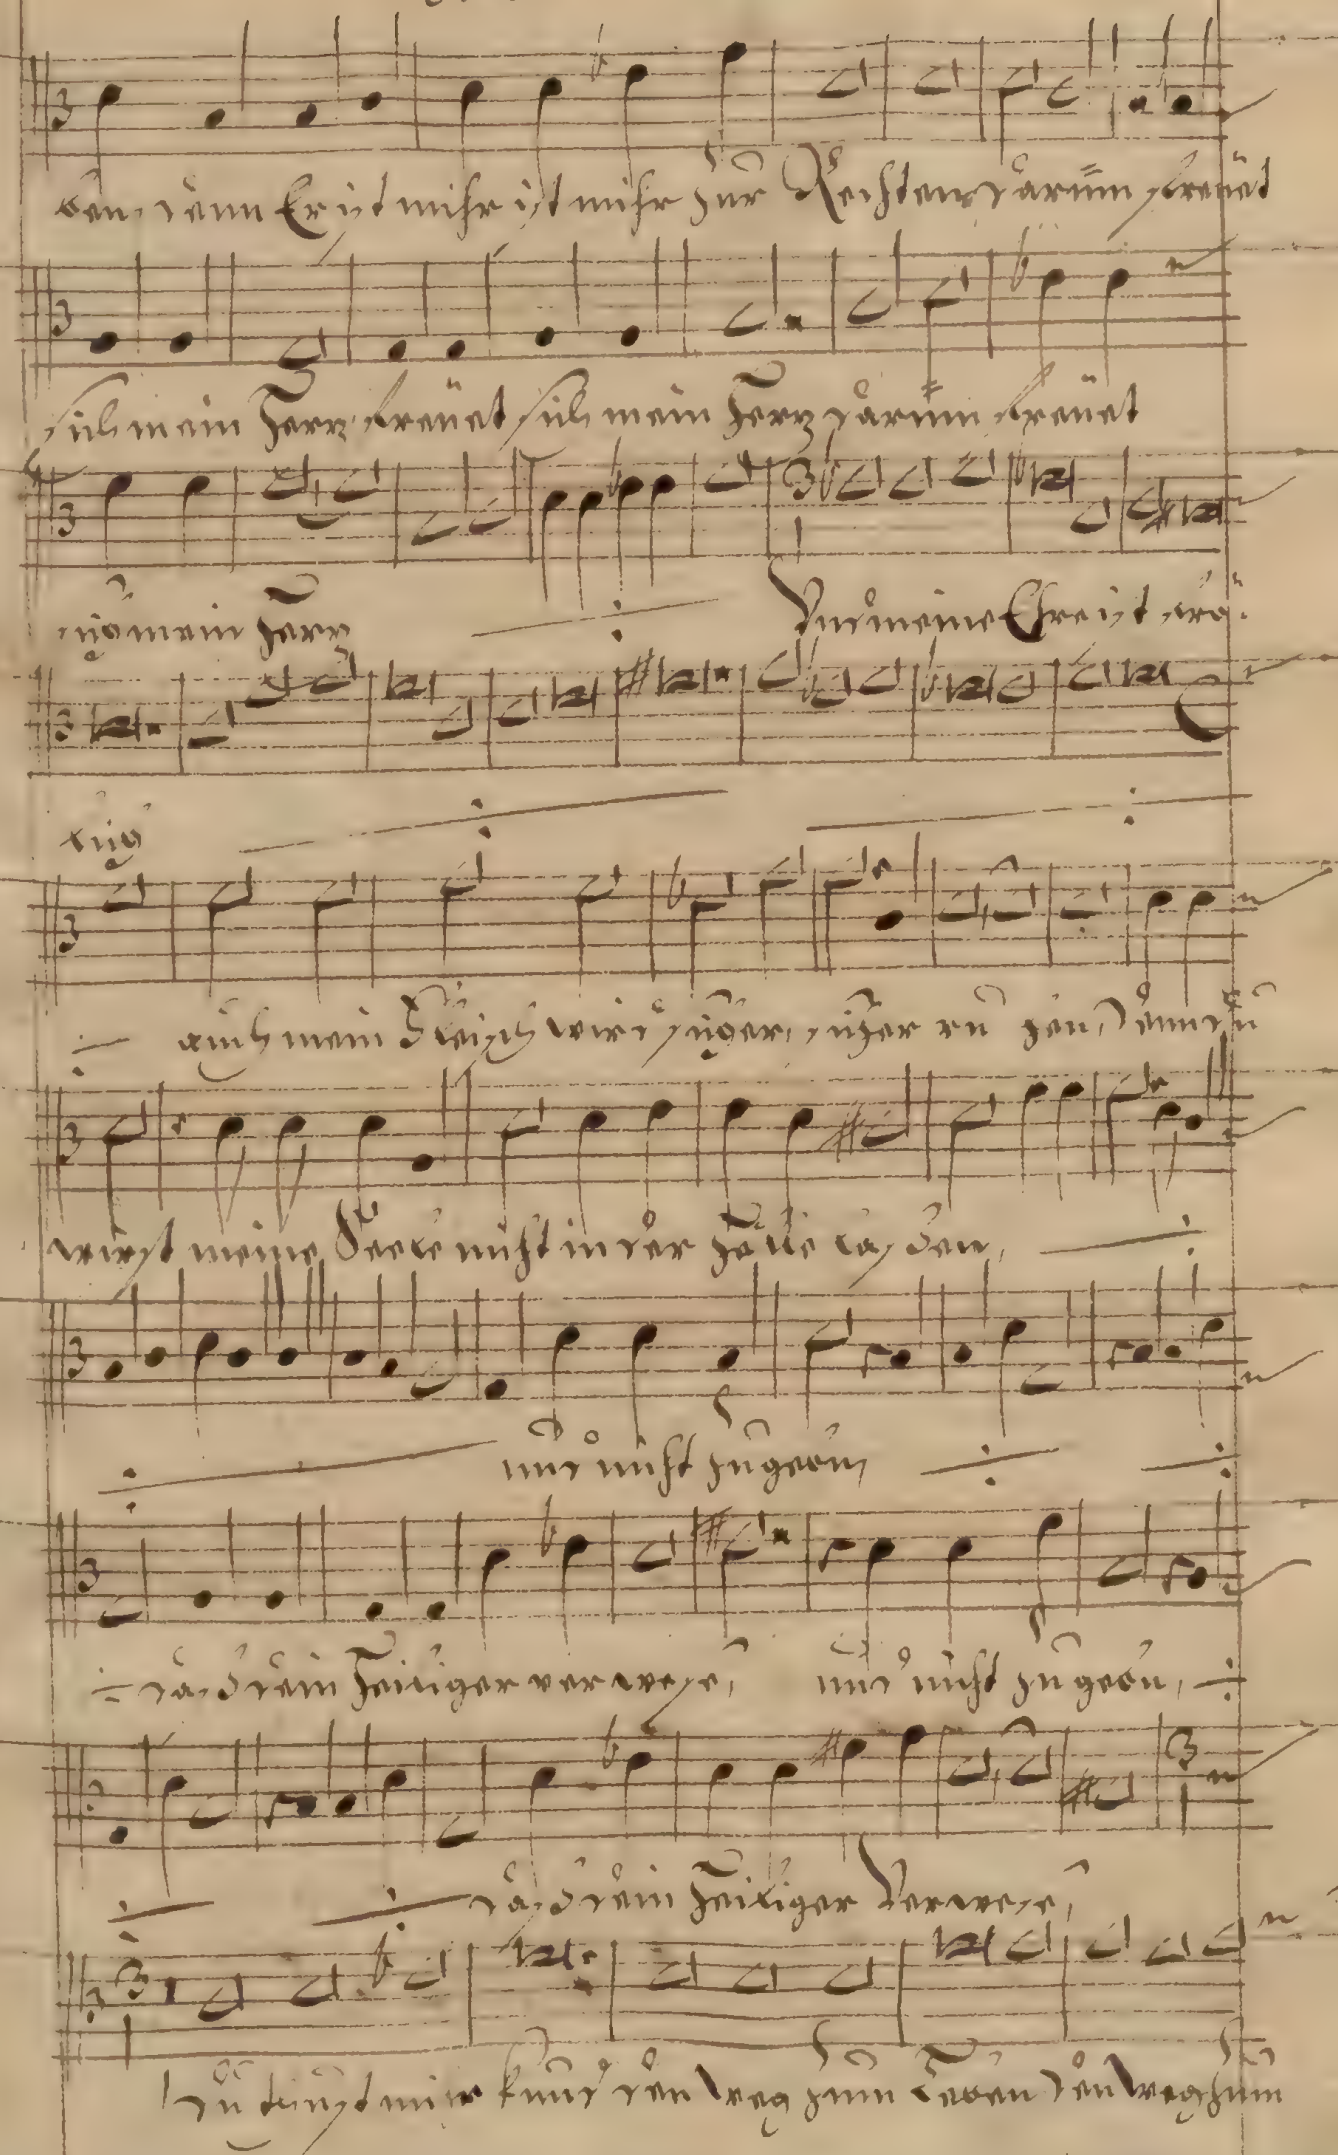 ben, denn Er ist mihr ist mihr zur Rechten, darüm freüet
sich mein Hertz freüet sich mein Hertz darüm freüet
sich mein Hertz
Vnd meine Ehre ist frö-
lich
auch mein Fleisch wird sicher, sicher ruhen, denn du
wirst meine Seele nicht in der Helle lassen,
und nicht zugeben,
daß dein Heiliger verwese, und nicht zugeben,
daß dein Heiliger Verwese,
du thust mir kund den Weg zum Leben den Weg zum